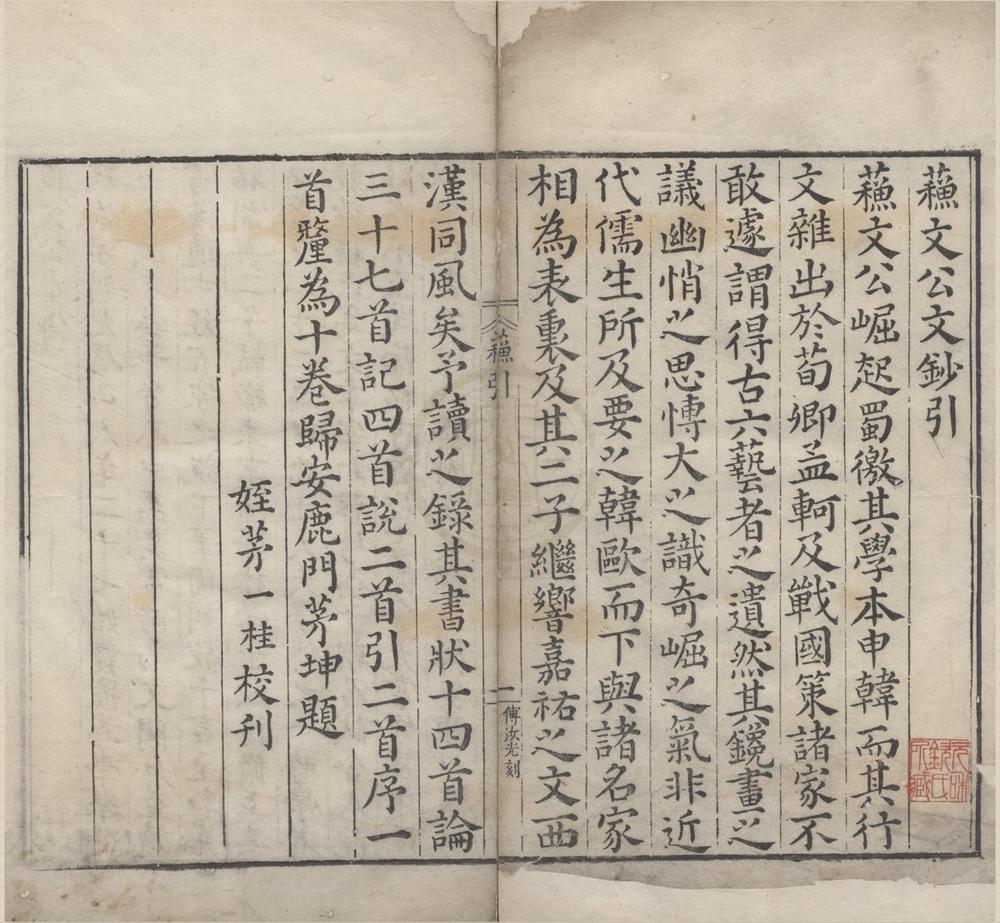 蘓文公文鈔引
蘓文公崛起蜀徼其學本申韓而其行
文雜出於荀卿孟軻及戰國策諸家不
敢遽謂得古六藝者之遺然其鑱畫之
議幽悄之思博大之識奇崛之氣非近
代儒生所及要之韓歐而下與諸名家
相為表裏及其二子繼響嘉祐之文西
蘓引
一
傅汝光刻
漢同風矣予讀之錄其書狀十四首論
三十七首記四首說二首引二首序一
首釐為十卷歸安鹿門茅坤題
姪茅一桂校刊